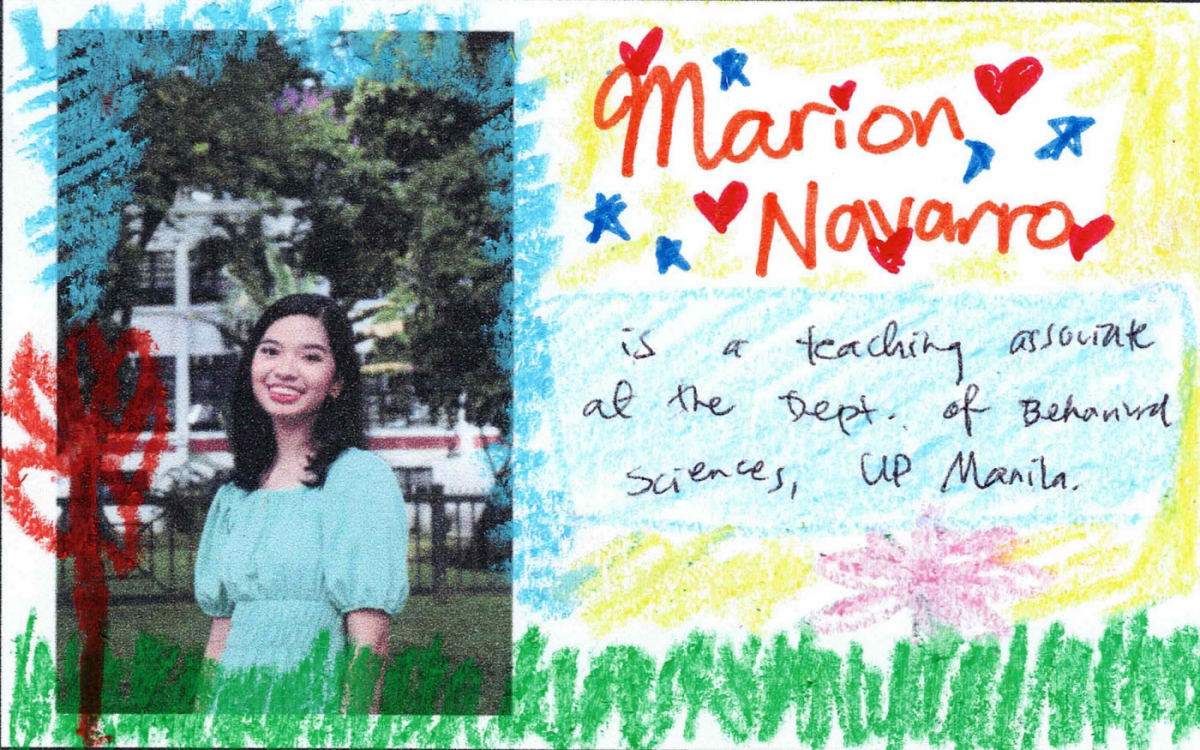 Marion
Navarro
is a teaching associate
at the Dept. of Behavioral
Sciences, UP Manila.